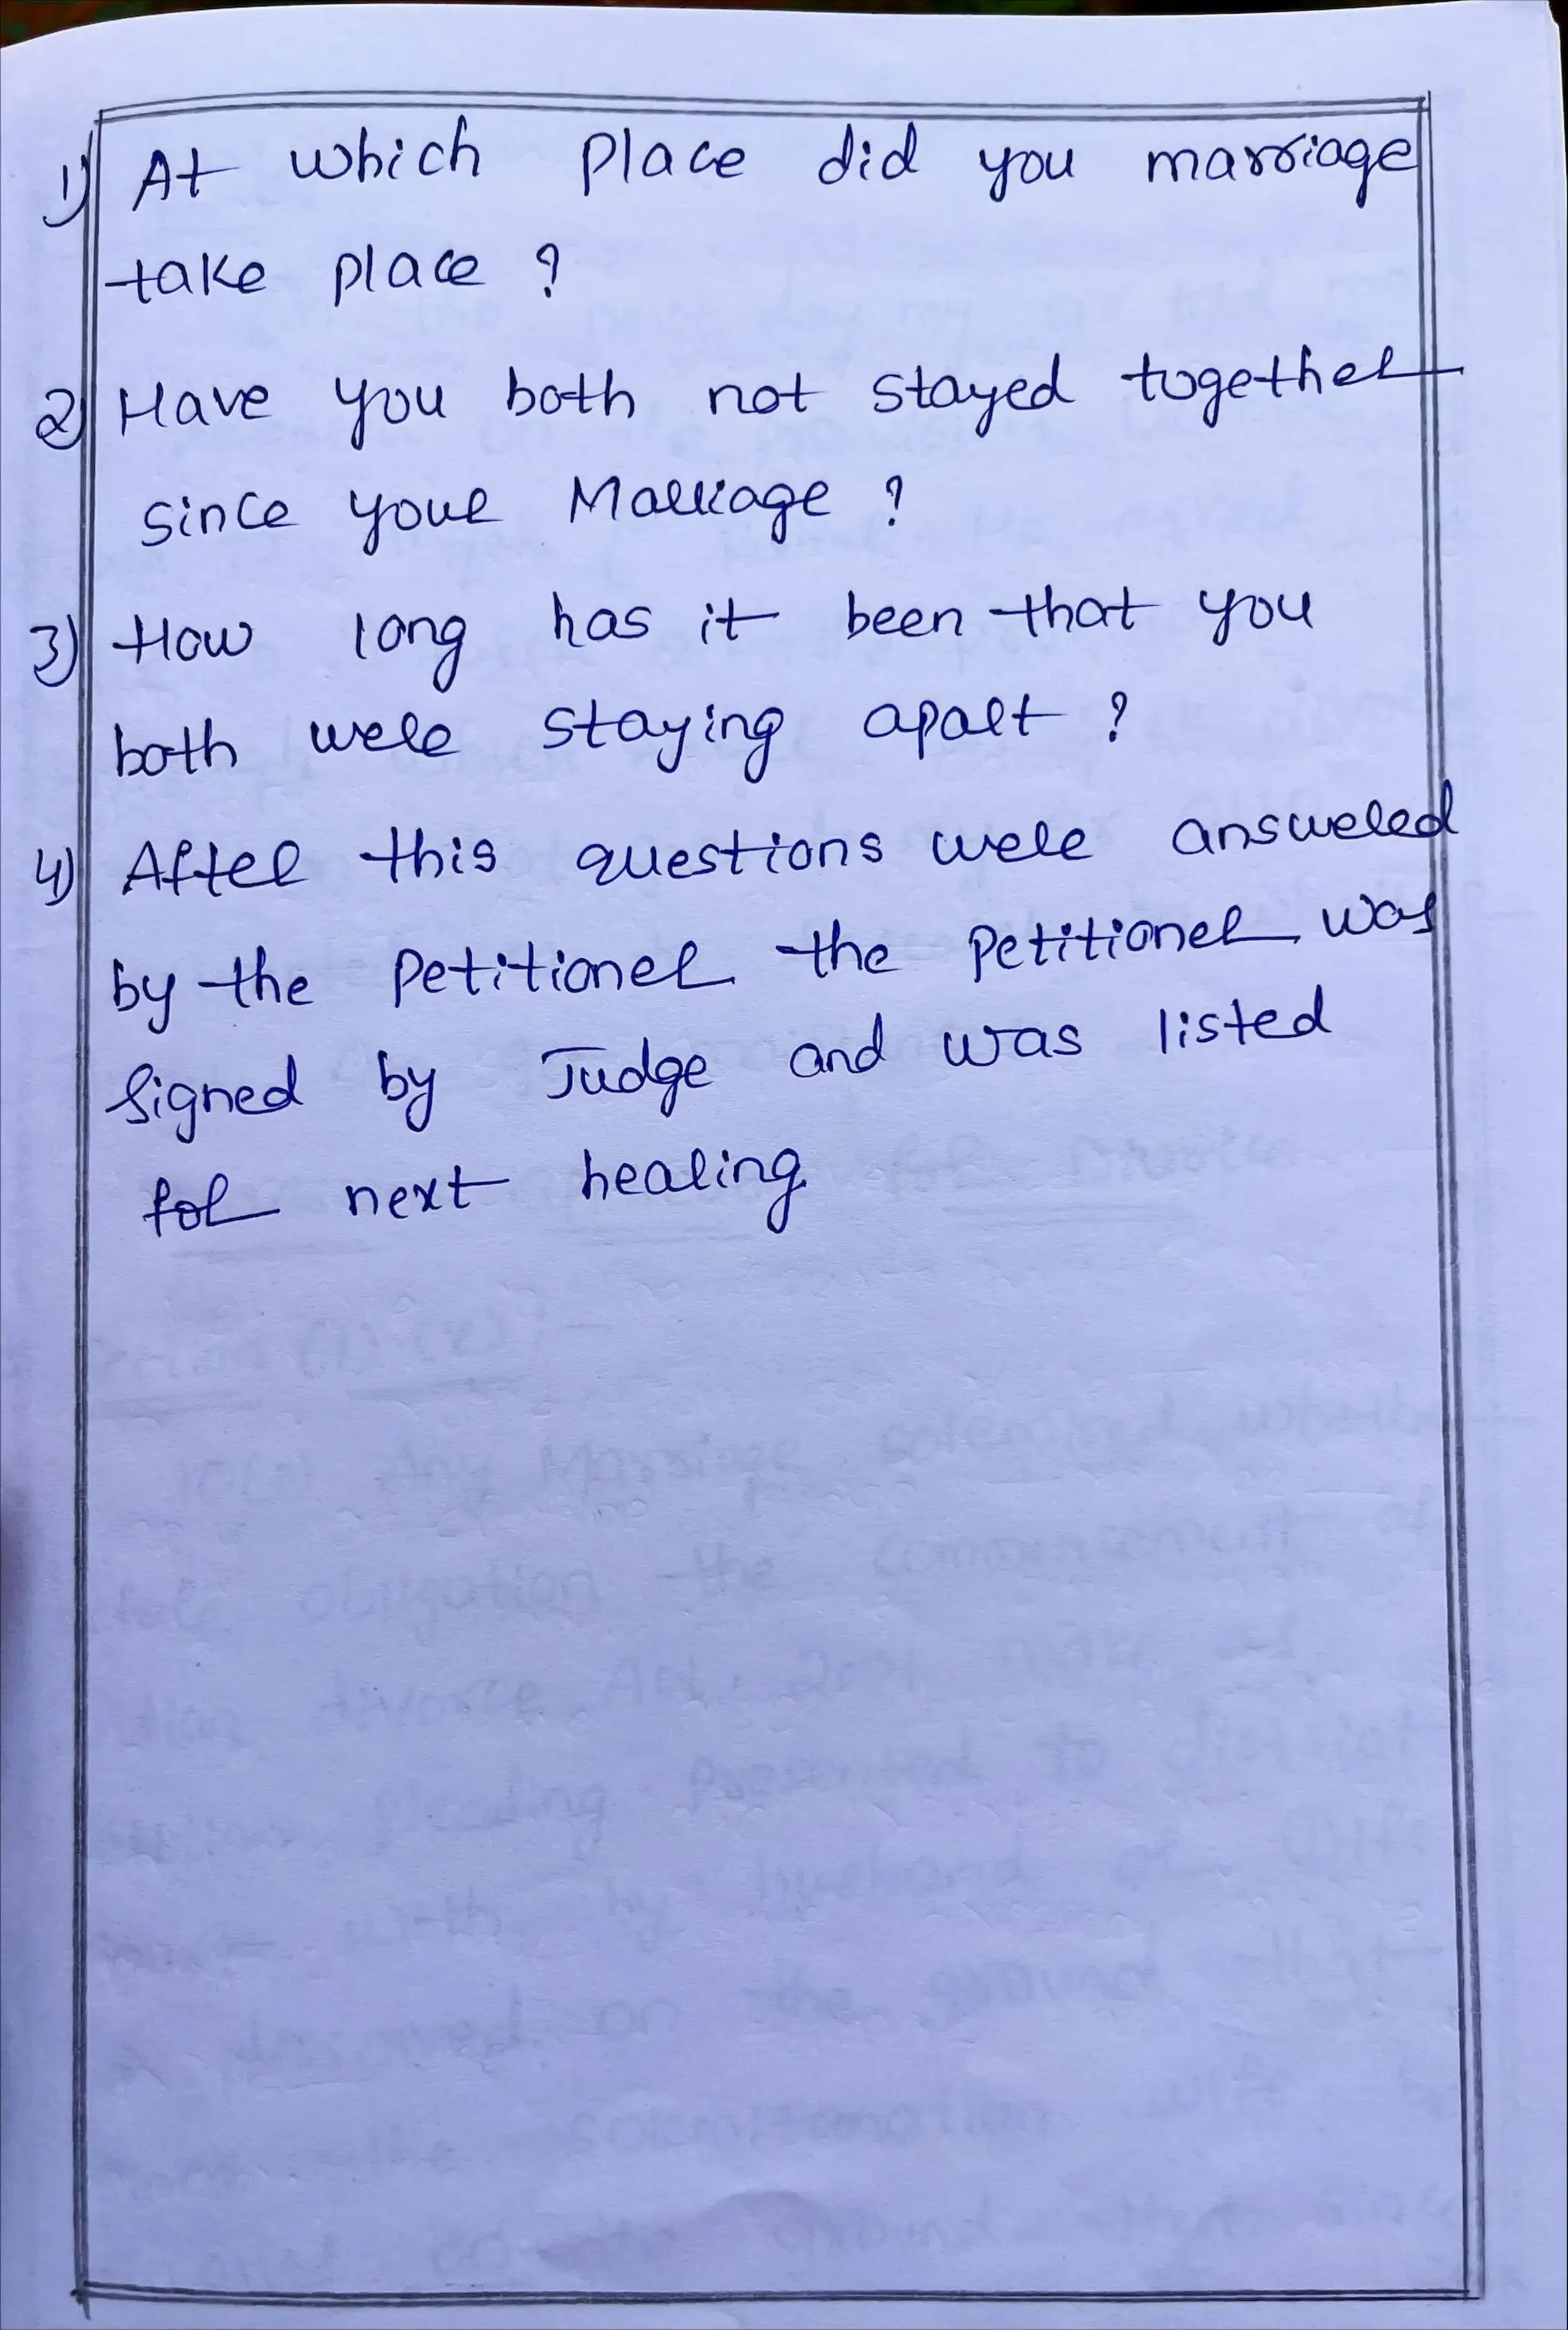 1) At which Place did you marriage
take place ?
2) Have you both not stayed together
since your Marriage ?
3) How long has it been that you
both were staying apart ?
4) After this questions were answered
by the Petitioner the Petitioner was
signed by Judge and was listed
for next hearing